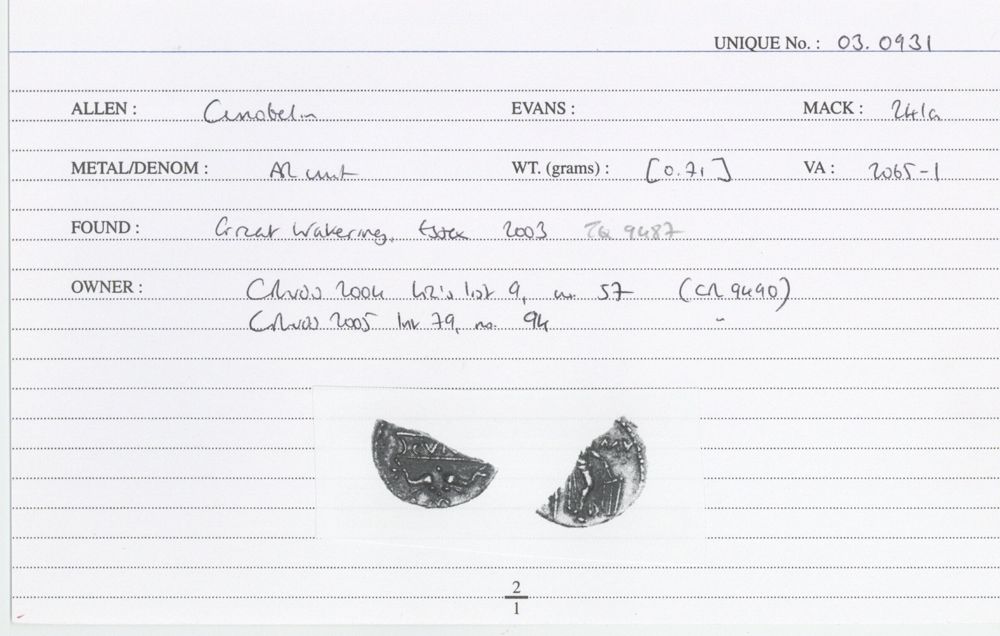 UNIQUE No. : 03.0931
ALLEN : Cunobelin EVANS : MACK : 241a
METAL/DENOM : AR unit WT. (grams) : [0.71] VA : 2065-1
FOUND : Great Wakering, Essex 2003 TQ 9487
OWNER : 2004 Liz's list 9, no. 57 (CR 9490)
2005 list 79, no. 94 "
2
1